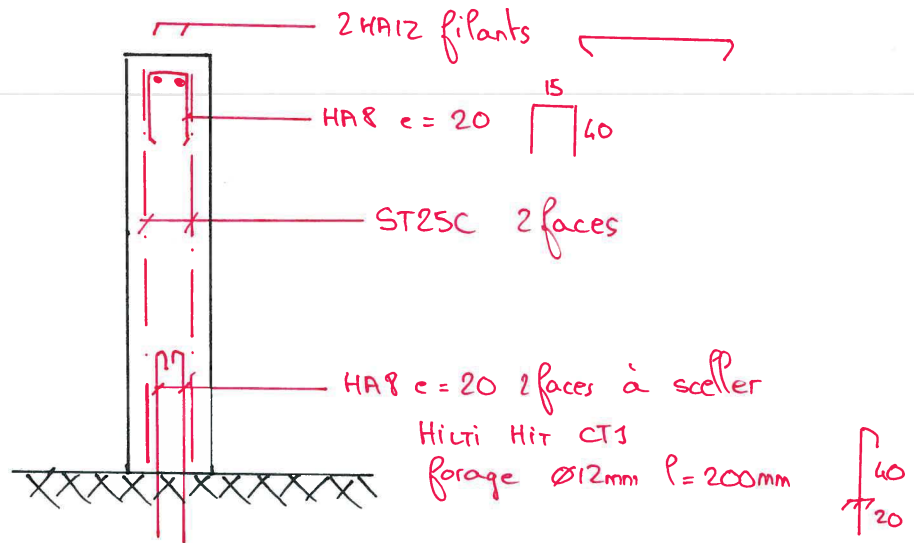 2HA12 filants
HA8 e=20
15
40
ST25C 2 faces
HA8 e=20 2 faces à sceller
HiLTi HiT CT1
forage ø12mm l=200mm
40
20